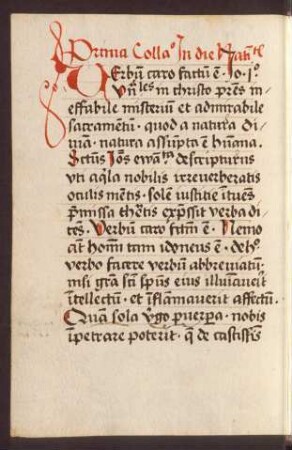 Prima Collaᵒ In die Natīt͞
Verbū caro factū ē · Jo · jᵒ
Vn̄ les in christo pr̄es in
effabile misteriū et admirabile
sacramentū · quod a natura di
uīa · natura assūpta ē hūana ·
Sctūs Joēs ewāˢ descripturus
vti aq̄la nobilis irreuerberatis
oculis mentis · solē iustitie ītuēs
p̄missa thētis exp̄ssit verba di
cēs · Verbū caro fctm̄ ē · Nemo
at̄ hom̄ tam idoneus ē · de hoc
verbo facere verbū abbreuiatū ·
nisi gr̄a sct̄i sp̄us eius illuīauerit
ītellectū · et īflamauerit affectū ·
Quā sola v̄go p̄uerpa · nobis
īpetrare poterit · q̄ de castissīs